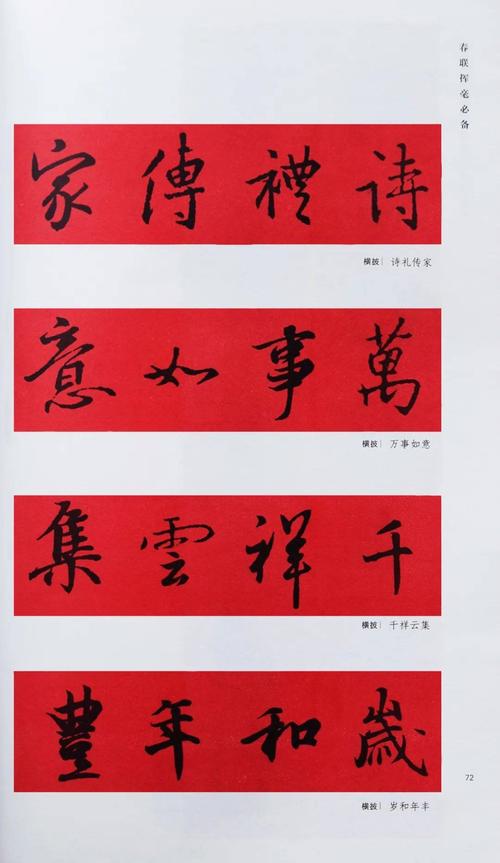 春联挥毫必备
詩禮傳家
横披｜诗礼传家
萬事如意
横披｜万事如意
千祥雲集
横披｜千祥云集
歲和年豐
横披｜岁和年丰
72